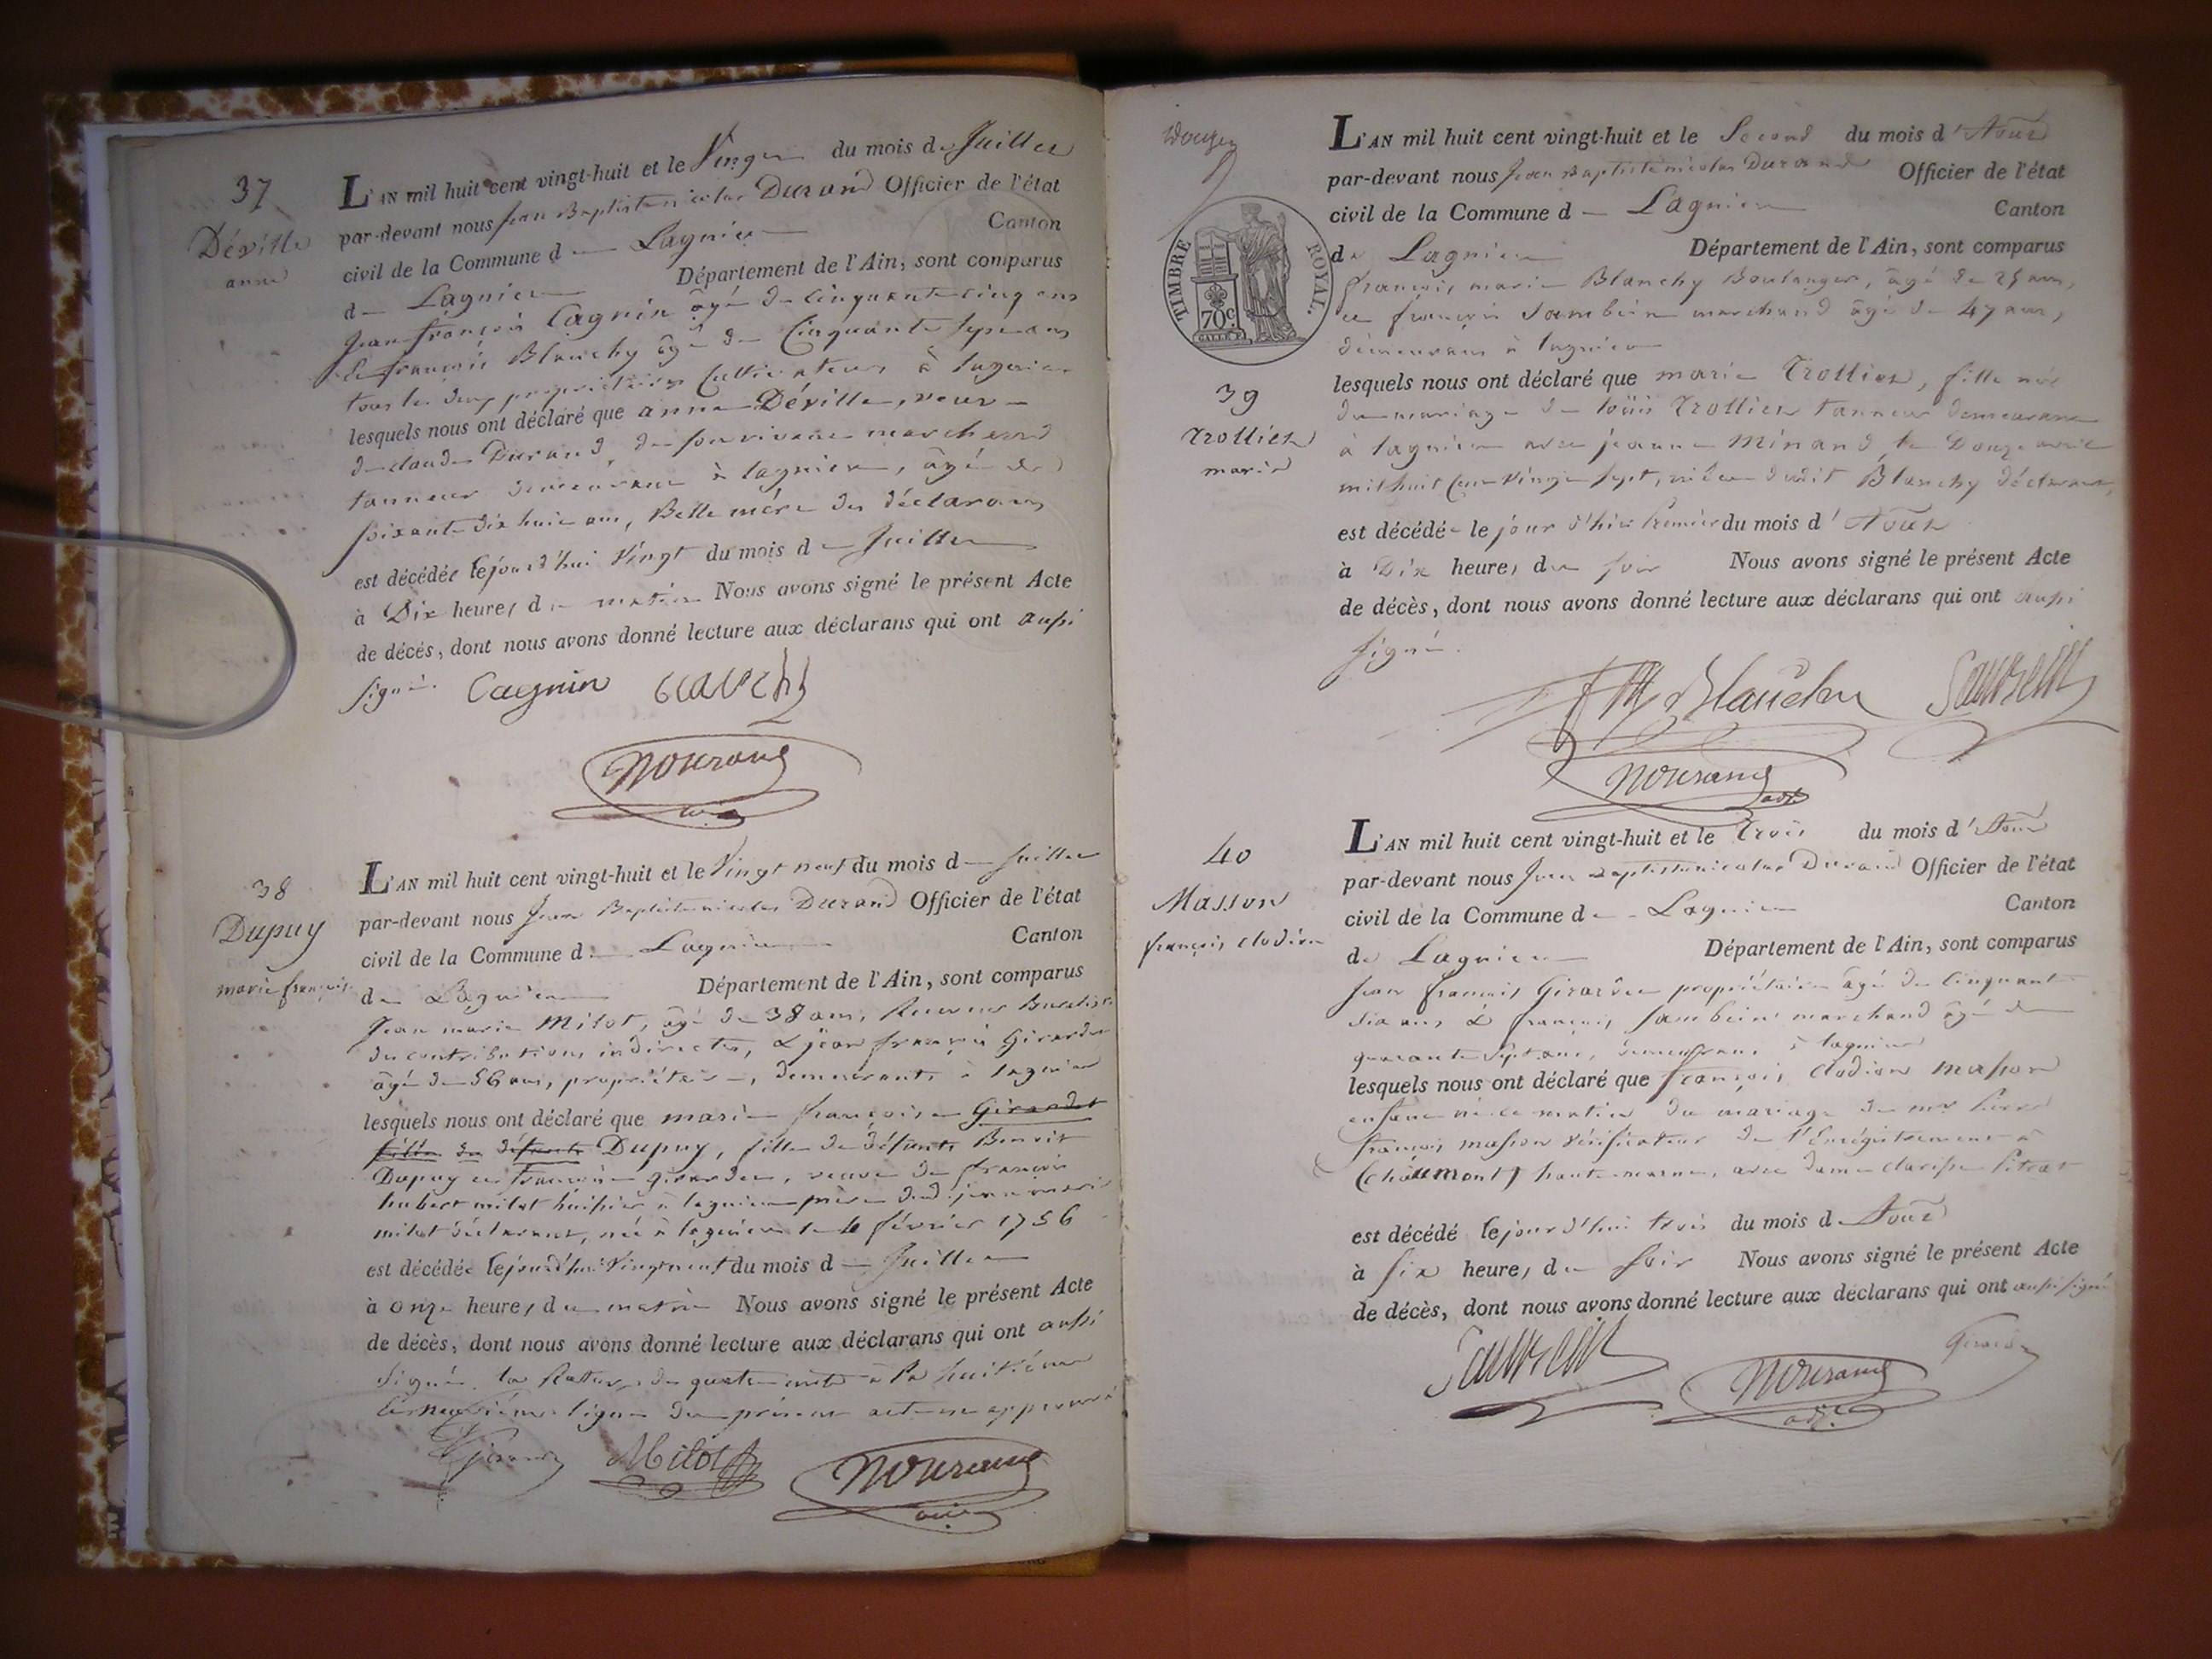 37
Déville
anne
L'AN mil huit cent vingt-huit et le Vingt du mois de Juillet
par-devant nous Jean Baptiste nicolas Durand Officier de l'état
civil de la Commune d Lagnieu Canton
d Lagnieu Département de l'Ain, sont comparus
Jean françois Cagnin âgé de Cinquante cinq ans
& françois Blanchy âgé de Cinquante sept ans
tous les deux propriétaires Cultivateurs à lagnieu
lesquels nous ont déclaré que anne Déville, veuve
de claude Durand, de son vivant marchand
tanneur demeurant à lagnieu, âgée de
soixante dix huit ans, Belle mère des déclarans
est décédée le jourd'hui Vingt du mois de Juillet
à Dix heures du matin Nous avons signé le présent Acte
de décès, dont nous avons donné lecture aux déclarans qui ont aussi
signé. Cagnin Blanchy
38
Dupuy
marie françoise
L'AN mil huit cent vingt-huit et le Vingt neuf du mois d Juillet
par-devant nous Jean Baptiste nicolas Durand Officier de l'état
civil de la Commune d Lagnieu Canton
de Lagnieu Département de l'Ain, sont comparus
Jean marie Milot, âgé de 38 ans, Receveur Buraliste
des contributions indirectes, & jean françois Girardet
âgé de 56 ans, propriétaire, demeurants à lagnieu
lesquels nous ont déclaré que marie françoise Girardet
fille de défunts Dupuy, fille de défunts Benoit
Dupuy et françoise girardet, veuve de françois
hubert milot huissier à lagnieu mère dud. jean marie
milot déclarant, née à lagnieu le 4 février 1756
est décédée le jourd'hui Vingt neuf du mois d Juillet
à onze heures du matin Nous avons signé le présent Acte
de décès, dont nous avons donné lecture aux déclarans qui ont aussi
signé. la Rature de quatre mots à la huitième
et neuvième lignes du présent acte est approuvée
Milot
TIMBRE ROYAL.
70c
39
Trollier
marie
L'AN mil huit cent vingt-huit et le Second du mois d'Août
par-devant nous Jean Baptiste nicolas Durand Officier de l'état
civil de la Commune d Lagnieu Canton
de Lagnieu Département de l'Ain, sont comparus
françois marie Blanchy Boulanger, âgé de 25 ans,
et françois Sambein marchand âgé de 47 ans,
demeurans à lagnieu
lesquels nous ont déclaré que marie Trollier, fille née
du mariage de loüis Trollier tanneur demeurant
à lagnieu avec jeanne Minand, le Douze avril
mil huit Cent Vingt Sept, dudit Blanchy déclarant,
est décédée le jour d'hier Premier du mois d'Août
à Dix heures du soir Nous avons signé le présent Acte
de décès, dont nous avons donné lecture aux déclarans qui ont aussi
signé.
fM Blanchy
40
Masson
françois clodion
L'AN mil huit cent vingt-huit et le trois du mois d'Août
par-devant nous Jean Baptiste nicolas Durand Officier de l'état
civil de la Commune de Lagnieu Canton
de Lagnieu Département de l'Ain, sont comparus
Jean françois Girardet propriétaire âgé de Cinquante
six ans & françois Sambein marchand âgé de
quarante Sept ans, demeurans à lagnieu
lesquels nous ont déclaré que françois Clodion Masson
enfant né ce matin du mariage de mr Pierre
françois masson Vérificateur de l'Enrégistrement à
(chaumont) haute marne, avec dame clarisse
est décédé le jourd'hui trois du mois d Août
à six heures du soir Nous avons signé le présent Acte
de décès, dont nous avons donné lecture aux déclarans qui ont aussi signé